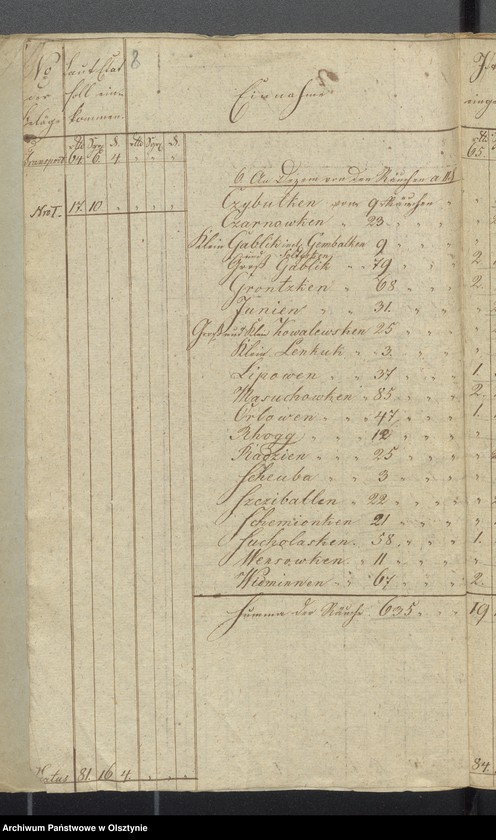 No der Beläge
Laut Etat soll einkommen
8
Einnahme
Rtl Sgr d. Rtl Sgr d.
Transport 64. 6. 4 " " "
65
b. An Dezem von den Rauchen a
No 1. 17. 10
Czybulken von 9 Rauchen "
Czarnowken " 23 " "
Klein Gablik incl. Gembalken 9 " "
und Soltysken
Groß Gablik " " 79 " " 2
Grontzken " 68 " " 2.
Junien " " 31. " "
Groß und Klein Kowalewsken 25 " "
Klein Lenkuk " " 3. " "
Lipowen " " 37 " " 1.
Masuchowken " 85 " " 2.
Orlowen " " 47 " " 1.
Rhogg " " " 12 " "
Radzien " " 25 " "
Scheuba " " 3 " "
Szcziballen " 22 " "
Schemionken 21 " "
Sucholasken. " 58 " " 1.
Wensowken " 11 " "
Widminnen " " 67 " " 2.
Summa der Rauche 635 " " 19
Latus 81. 16 4. " " "
84.
Archiwum Państwowe w Olsztynie